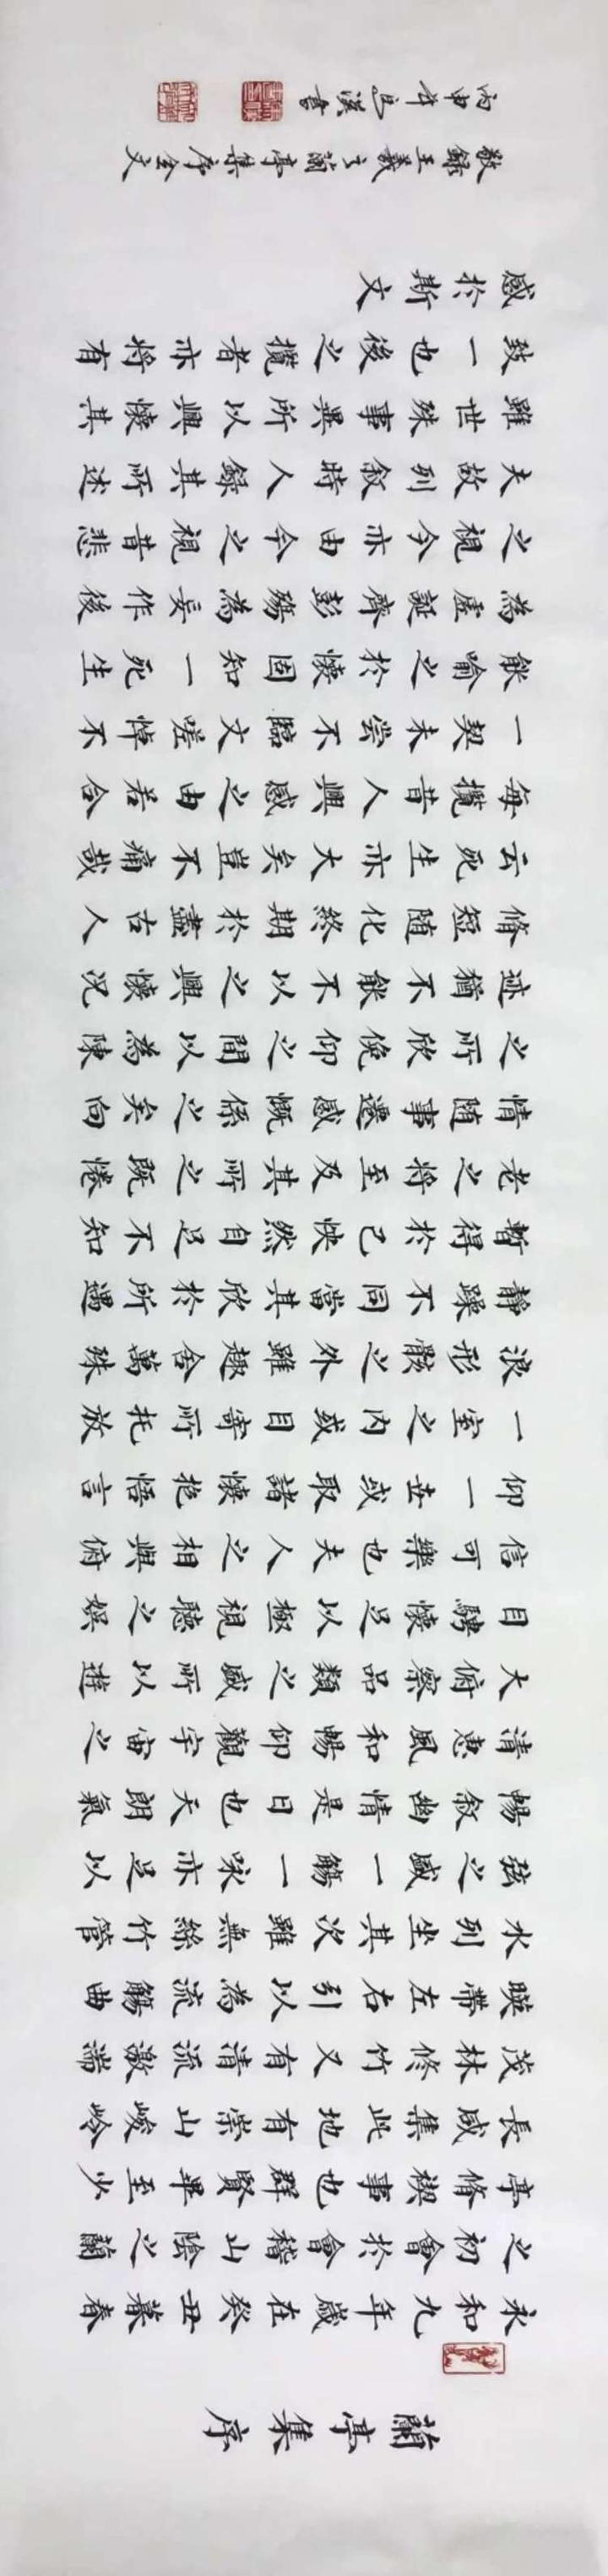 蘭亭集序
永和九年歲在癸丑暮春
之初會於會稽山陰之蘭
亭脩禊事也群賢畢至少
長咸集此地有崇山峻岭
茂林修竹又有清流激湍
映帶左右引以為流觴曲
水列坐其次雖無絲竹管
弦之盛一觴一咏亦足以
暢敘幽情是日也天朗氣
清惠風和暢仰觀宇宙之
大俯察品類之盛所以遊
目騁懷足以極視聽之娛
信可樂也夫人之相與俯
仰一世或取諸懷抱悟言
一室之內或因寄所托放
浪形骸之外雖趣舍萬殊
靜躁不同當其欣於所遇
暫得於己快然自足不知
老之將至及其所之既惓
情随事遷感慨係之矣向
之所欣俛仰之間以為陳
迹猶不能不以之興懷況
脩短随化終期於盡古人
云死生亦大矣豈不痛哉
每攬昔人興感之由若合
一契未嘗不臨文嗟悼不
能喻之於懷固知一死生
為虛誕齊彭殤為妄作後
之視今亦由今之視昔悲
夫故列敘時人錄其所述
雖世殊事異所以興懷其
致一也後之攬者亦將有
感於斯文
敬錄王羲之蘭亭集序全文
丙申年馬溪書